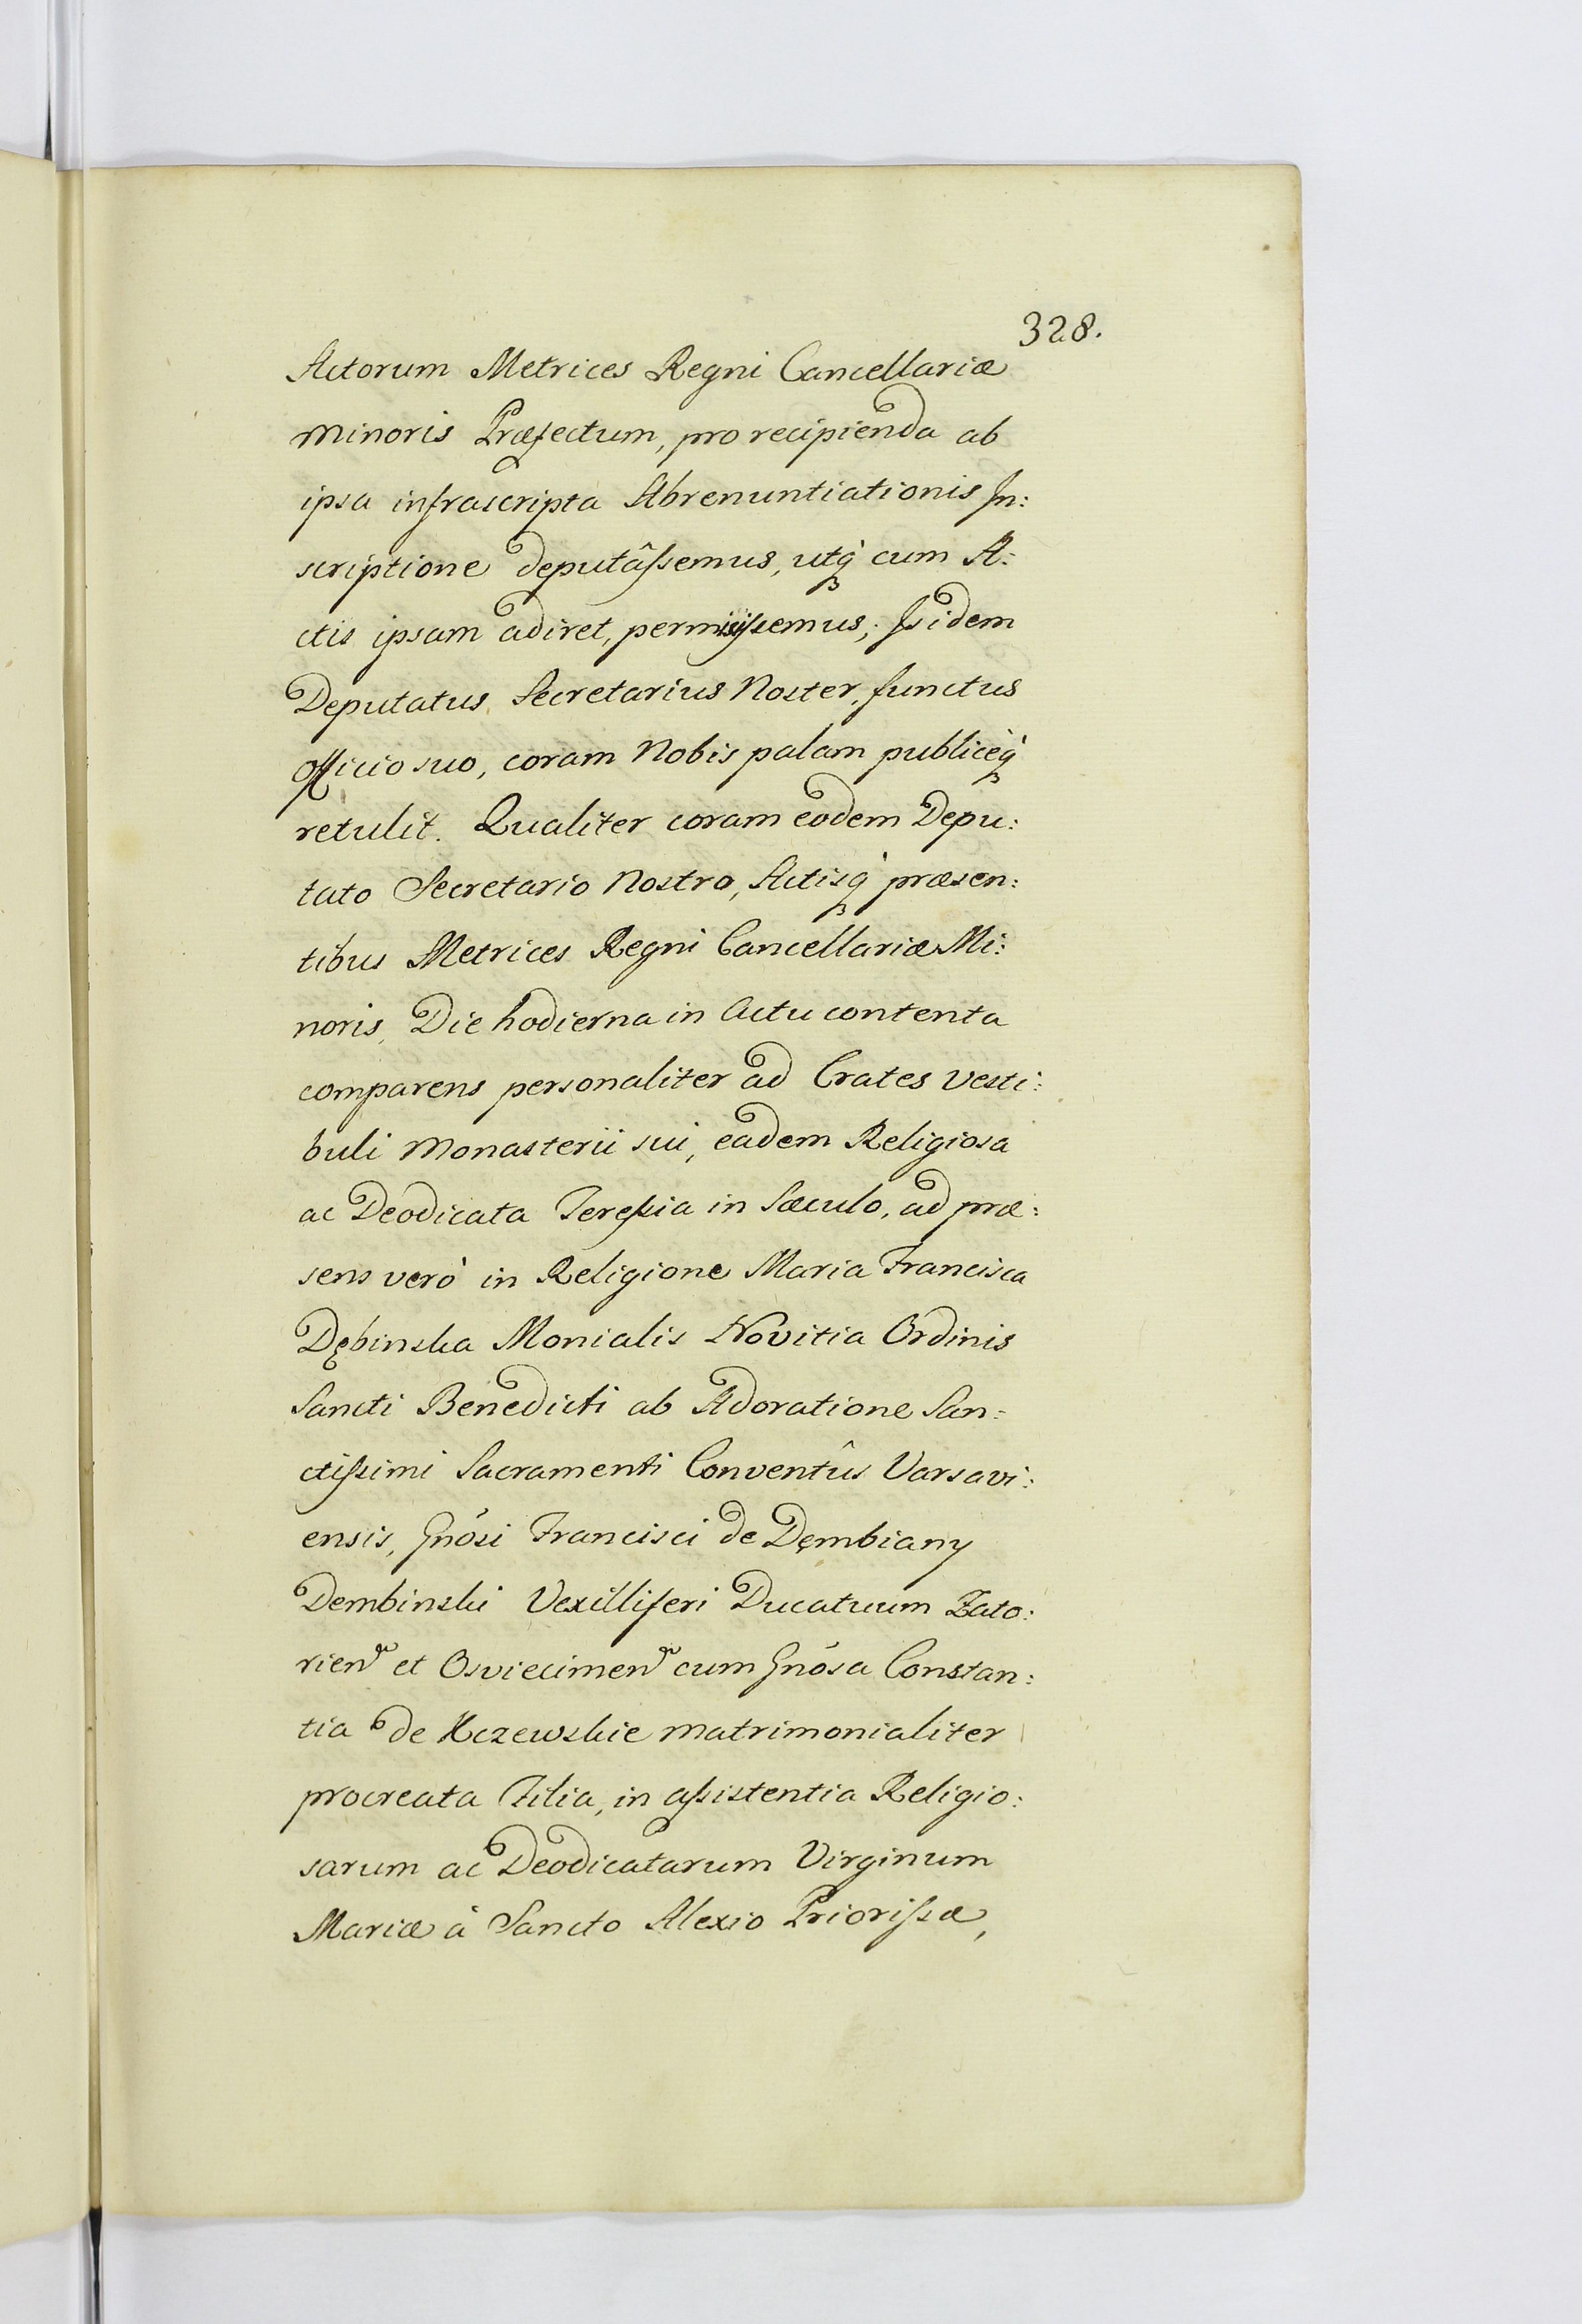 328.
Actorum Metrices Regni Cancellariæ
Minoris Præfectum, pro recipienda ab
ipsa infrascripta Abrenuntiationis In:
scriptione deputâſsemus, utq̀ cum A:
ctis ipsam adiret, permisiſsemus; Is idem
Deputatus Secretarius Noster, functus
officio suo, coram Nobis palam publiceq̀
retulit. Qualiter coram eodem Depu:
tato Secretario Nostro, Actisq̀ præsen:
tibus Metrices Regni Cancellariæ Mi:
noris, Die hodierna in Actu contenta
comparens personaliter ad Crates Vesti:
buli Monasterii sui, eadem Religiosa
ac Deodicata Tereſsia in Sæculo, ad præ:
sens verò in Religione Maria Francisca
Dębinska Monialis Novitia Ordinis
Sancti Benedicti ab Adoratione San:
ctiſsimi Sacramenti Conventûs Varsavi:
ensis, Gnõsi Francisci de Dęmbiany
Dembinski Vexilliferi Ducatuum Zato:
rien̄ et Osviecimen̄ cum Gnõsa Constan:
tia de Kczewskie matrimonialiter
procreata Filia, in aſsistentia Religio:
sarum ac Deodicatarum Virginum
Mariæ à Sancto Alexio Prioriſsæ,